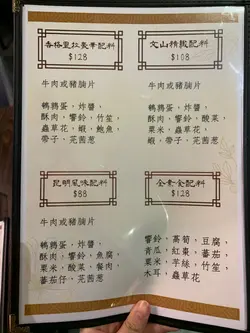 香格里拉豪華配料
$128
牛肉或豬腩片
鵪鶉蛋，炸醬，
酥肉，響鈴，竹笙，
蟲草花，蝦，鮑魚，
帶子、芫茜蔥
文山精緻配料
$108
牛肉或豬腩片
鵪鶉蛋，炸醬，
酥肉，響鈴，酸菜，
粟米，蟲草花，
蝦，帶子、芫茜蔥
昆明風味配料
$88
牛肉或豬腩片
鵪鶉蛋，炸醬，
酥肉，響鈴，魚腐，
粟米，酸菜，餐肉，
蕃茄仔，芫茜蔥
全素食配料
$128
響鈴，茼蒿，豆腐，
青瓜，紅棗，蕃茄，
粟米，芋絲，竹笙，
木耳，蟲草花